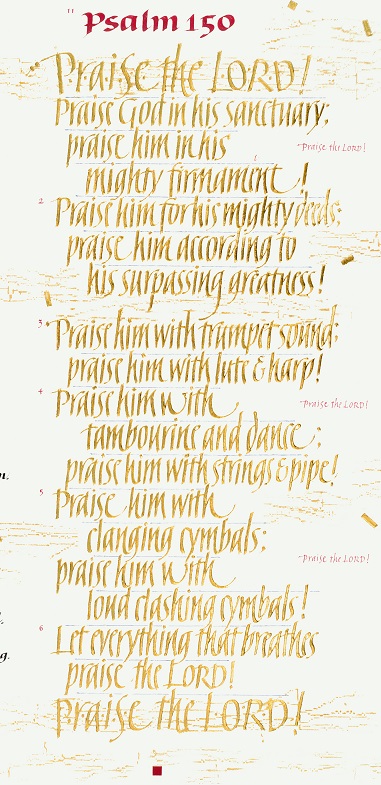 Psalm 150
Praise the LORD!
Praise God in his sanctuary;
praise him in his
Praise the LORD!
mighty firmament!
2 Praise him for his mighty deeds;
praise him according to
his surpassing greatness!
3 Praise him with trumpet sound;
praise him with lute & harp!
4 Praise him with
Praise the LORD!
tambourine and dance;
praise him with strings & pipe!
5 Praise him with
clanging cymbals;
Praise the LORD!
praise him with
loud clashing cymbals!
6 Let everything that breathes
praise the LORD!
Praise the LORD!